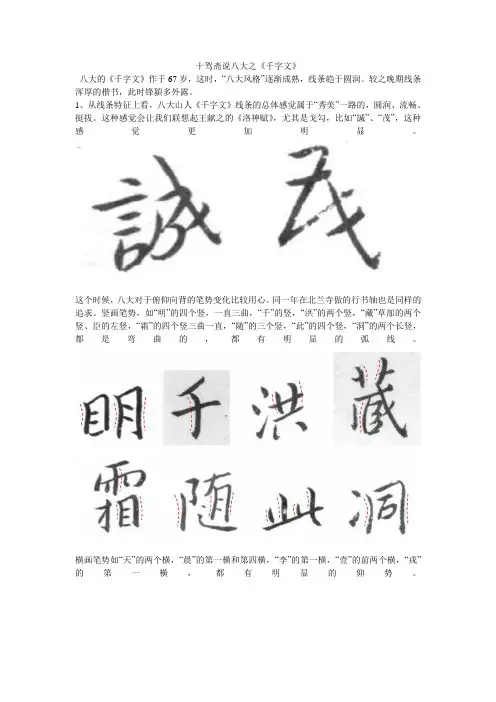 十驾斋说八大之《千字文》
八大的《千字文》作于67岁，这时，“八大风格”逐渐成熟，线条趋于圆润。较之晚期线条
浑厚的楷书，此时锋颖多外露。
1、从线条特征上看，八大山人《千字文》线条的总体感觉属于“秀美”一路的，圆润、流畅、
挺拔。这种感觉会让我们联想起王献之的《洛神赋》，尤其是戈勾，比如“誠”、“茂”，这种
感觉更加明显。
誠 茂
这个时候，八大对于俯仰向背的笔势变化比较用心。同一年在北兰寺做的行书轴也是同样的
追求。竖画笔势，如“明”的四个竖，一直三曲，“千”的竖，“洪”的两个竖，“藏”草部的两个
竖、臣的左竖，“霜”的四个竖三曲一直，“随”的三个竖，“此”的四个竖，“洞”的两个长竖，
都是弯曲的，都有明显的弧线。
明 千 洪 藏
霜 随 此 洞
横画笔势如“天”的两个横，“晨”的第一横和第四横，“李”的第一横，“壹”的前两个横，“戎”
的第一横，都有明显的仰势。